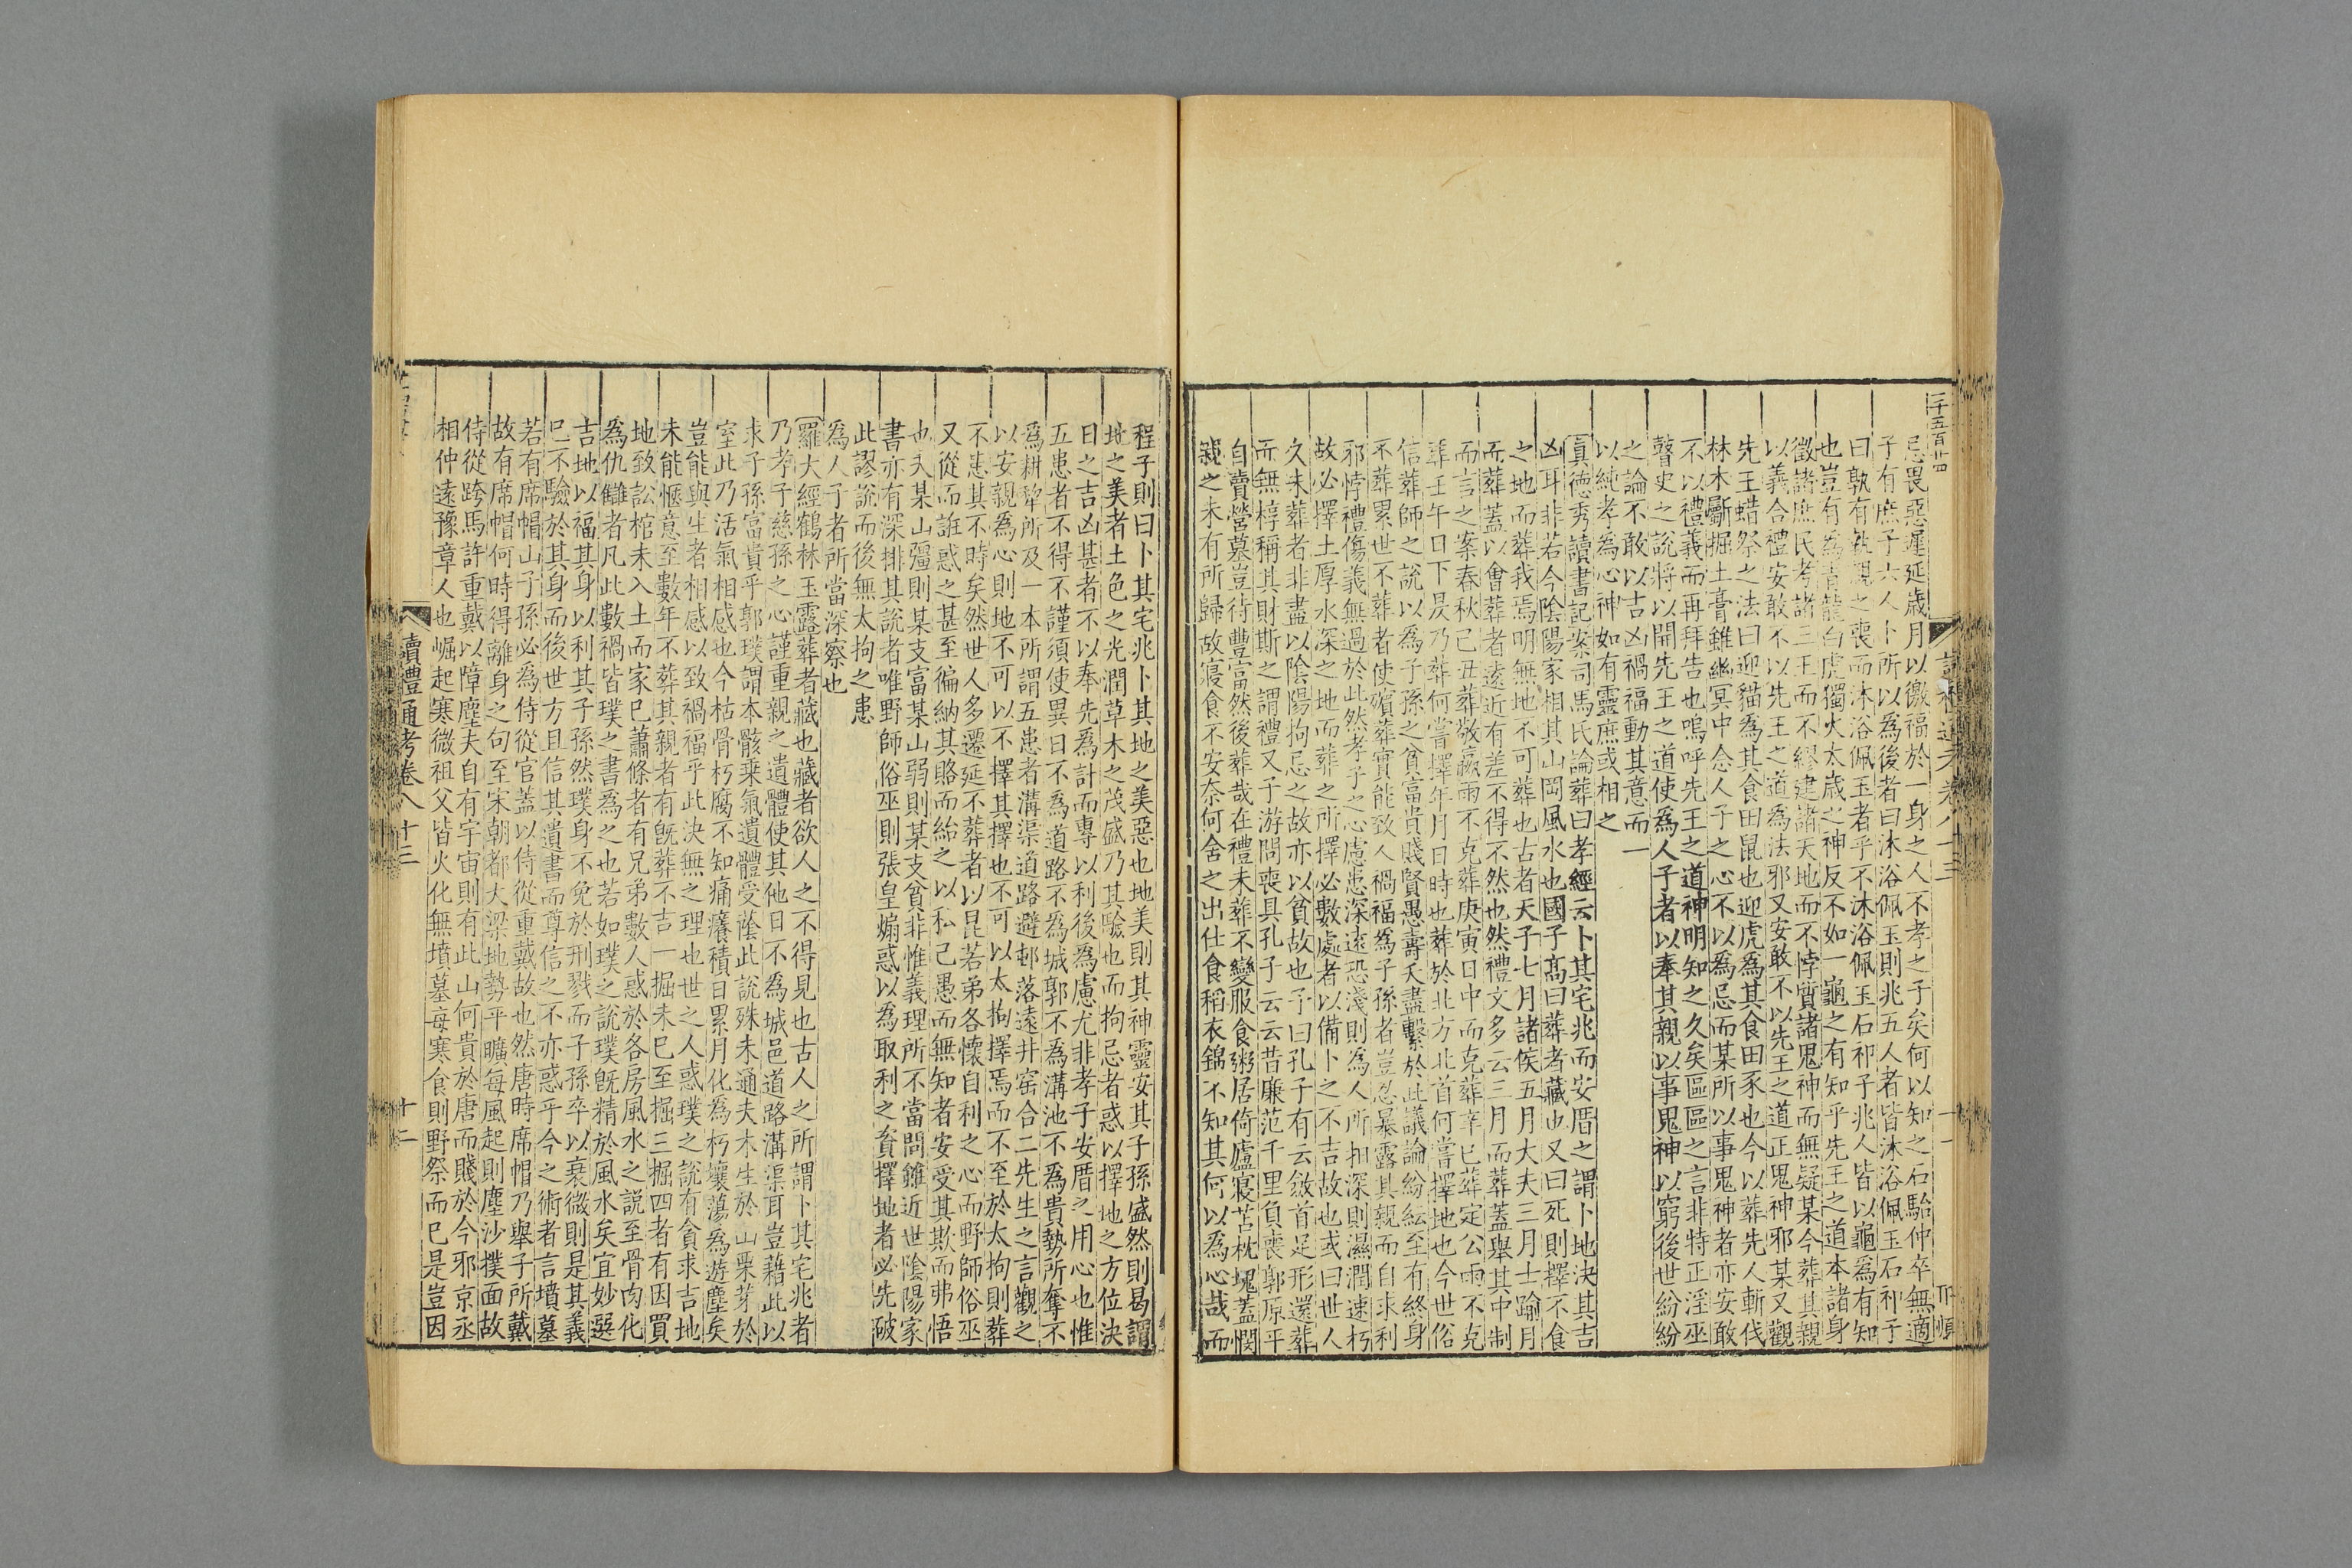 忌畏惡遲延歲月以徼福於一身之人不孝之子矣何以知之石駘仲卒無適
子有庶子六人卜所以為後者曰沐浴佩玉則兆五人者皆沐浴佩玉石祁子
曰孰有執親之喪而沐浴佩玉者乎不沐浴佩玉石祁子兆人皆以龜為有知
也豈有為青龍白虎獨火太歲之神反不如一龜之有知乎先王之道本諸身
徵諸庶民考諸三王而不繆建諸天地而不悖質諸鬼神而無疑某今葬其親
以義合禮安敢不以先王之道為法邪又安敢不以先王之道正鬼神邪某又觀
先王蜡祭之法曰迎貓為其食田鼠也迎虎為其食田豕也今以葬先人斬伐
林木斸掘土膏雖幽冥中念人子之心不以為忌而某所以事鬼神者亦安敢
不以禮義而再拜告也嗚呼先王之道神明知之久矣區區之言非特正淫巫
瞽史之說將以開先王之道使為人子者以奉其親以事鬼神以窮後世紛紛
之論不敢以古凶禍福動其意而一
以純孝為心神如有靈庶或相之
真德秀讀書記案司馬氏論葬曰孝經云卜其宅兆而安厝之謂卜地決其吉
凶耳非若今陰陽家相其山岡風水也國子高曰葬者藏也又曰死則擇不食
之地而葬我焉明無地不可葬也古者天子七月諸侯五月大夫三月士踰月
而葬蓋以會葬者遠近有差不得不然也然禮文多云三月而葬蓋舉其中制
而言之案春秋己丑葬敬嬴雨不克葬庚寅日中而克葬辛巳葬定公雨不克
葬壬午日下昃乃葬何嘗擇年月日時也葬於北方北首何嘗擇地也今世俗
信葬師之說以為子孫之貧富貴賤賢愚壽夭盡繫於此議論紛紜至有終身
不葬累世不葬者使殯葬實能致人禍福為子孫者豈忍暴露其親而自求利
邪悖禮傷義無過於此然孝子之心慮患深遠恐淺則為人所抇深則濕潤速朽
故必擇土厚水深之地而葬之所擇必數處者以備卜之不吉故也或曰世人
久未葬者非盡以陰陽拘忌之故亦以貧故也子曰孔子有云斂首足形還葬
而無椁稱其財斯之謂禮又子游問喪具孔子云云昔廉范千里負喪郭原平
自賣營墓豈待豐富然後葬哉在禮未葬不變服食粥居倚廬寢苫枕塊蓋憫
親之未有所歸故寢食不安奈何舍之出仕食稻衣錦不知其何以為心哉而
程子則曰卜其宅兆卜其地之美惡也地美則其神靈安其子孫盛然則曷謂
地之美者土色之光潤草木之茂盛乃其驗也而拘忌者惑以擇地之方位決
日之吉凶甚者不以奉先為計而專以利後為慮尤非孝子安厝之用心也惟
五患者不得不謹須使異日不為道路不為城郭不為溝池不為貴勢所奪不
為耕犂所及一本所謂五患者溝渠道路避邨落遠井窑合二先生之言觀之
以安親為心則地不可以不擇其擇也不可以太拘擇焉而不至於太拘則葬
不患其不時矣然世人多遷延不葬者以昆若弟各懷自利之心而野師俗巫
又從而誑惑之甚至徧納其賂而紿之以私己愚而無知者安受其欺而弗悟
也夫某山彊則某支富某山弱則某支貧非惟義理所不當問雖近世陰陽家
書亦有深排其說者唯野師俗巫則張皇煽惑以為取利之資擇地者必先破
此謬說而後無太拘之患
為人子者所當深察也
羅大經鶴林玉露葬者藏也藏者欲人之不得見也古人之所謂卜其宅兆者
乃孝子慈孫之心謹重親之遺體使其他日不為城邑道路溝渠耳豈藉此以
求子孫富貴乎郭璞謂本骸乗氣遺體受蔭此說殊未通夫木生於山栗芽於
室此乃活氣相感也今枯骨朽腐不知痛癢積日累月化為朽壤蕩為遊塵矣
豈能與生者相感以致禍福乎此決無之理也世之人惑璞之說有貪求吉地
未能愜意至數年不葬其親者有既葬不吉一掘未已至掘三掘四者有因買
地致訟棺未入土而家已蕭條者有兄弟數人惑於各房風水之說至骨肉化
為仇讎者凡此數禍皆璞之書為之也若如璞之說璞既精於風水矣宜妙選
吉地以福其身以利其子孫然璞身不免於刑戮而子孫卒以衰微則是其義
已不驗於其身而後世方且信其遺書而尊信之不亦惑乎今之術者言墳墓
若有席帽山子孫必為侍從官蓋以侍從重戴故也然唐時席帽乃舉子所戴
故有席帽何時得離身之句至宋朝都大梁地勢平曠每風起則塵沙撲面故
侍從跨馬許重戴以障塵夫自有宇宙則有此山何貴於唐而賤於今邪京丞
相仲遠豫章人也崛起寒微祖父皆火化無墳墓每寒食則野祭而已是豈因
讀禮通考卷八十三
十二